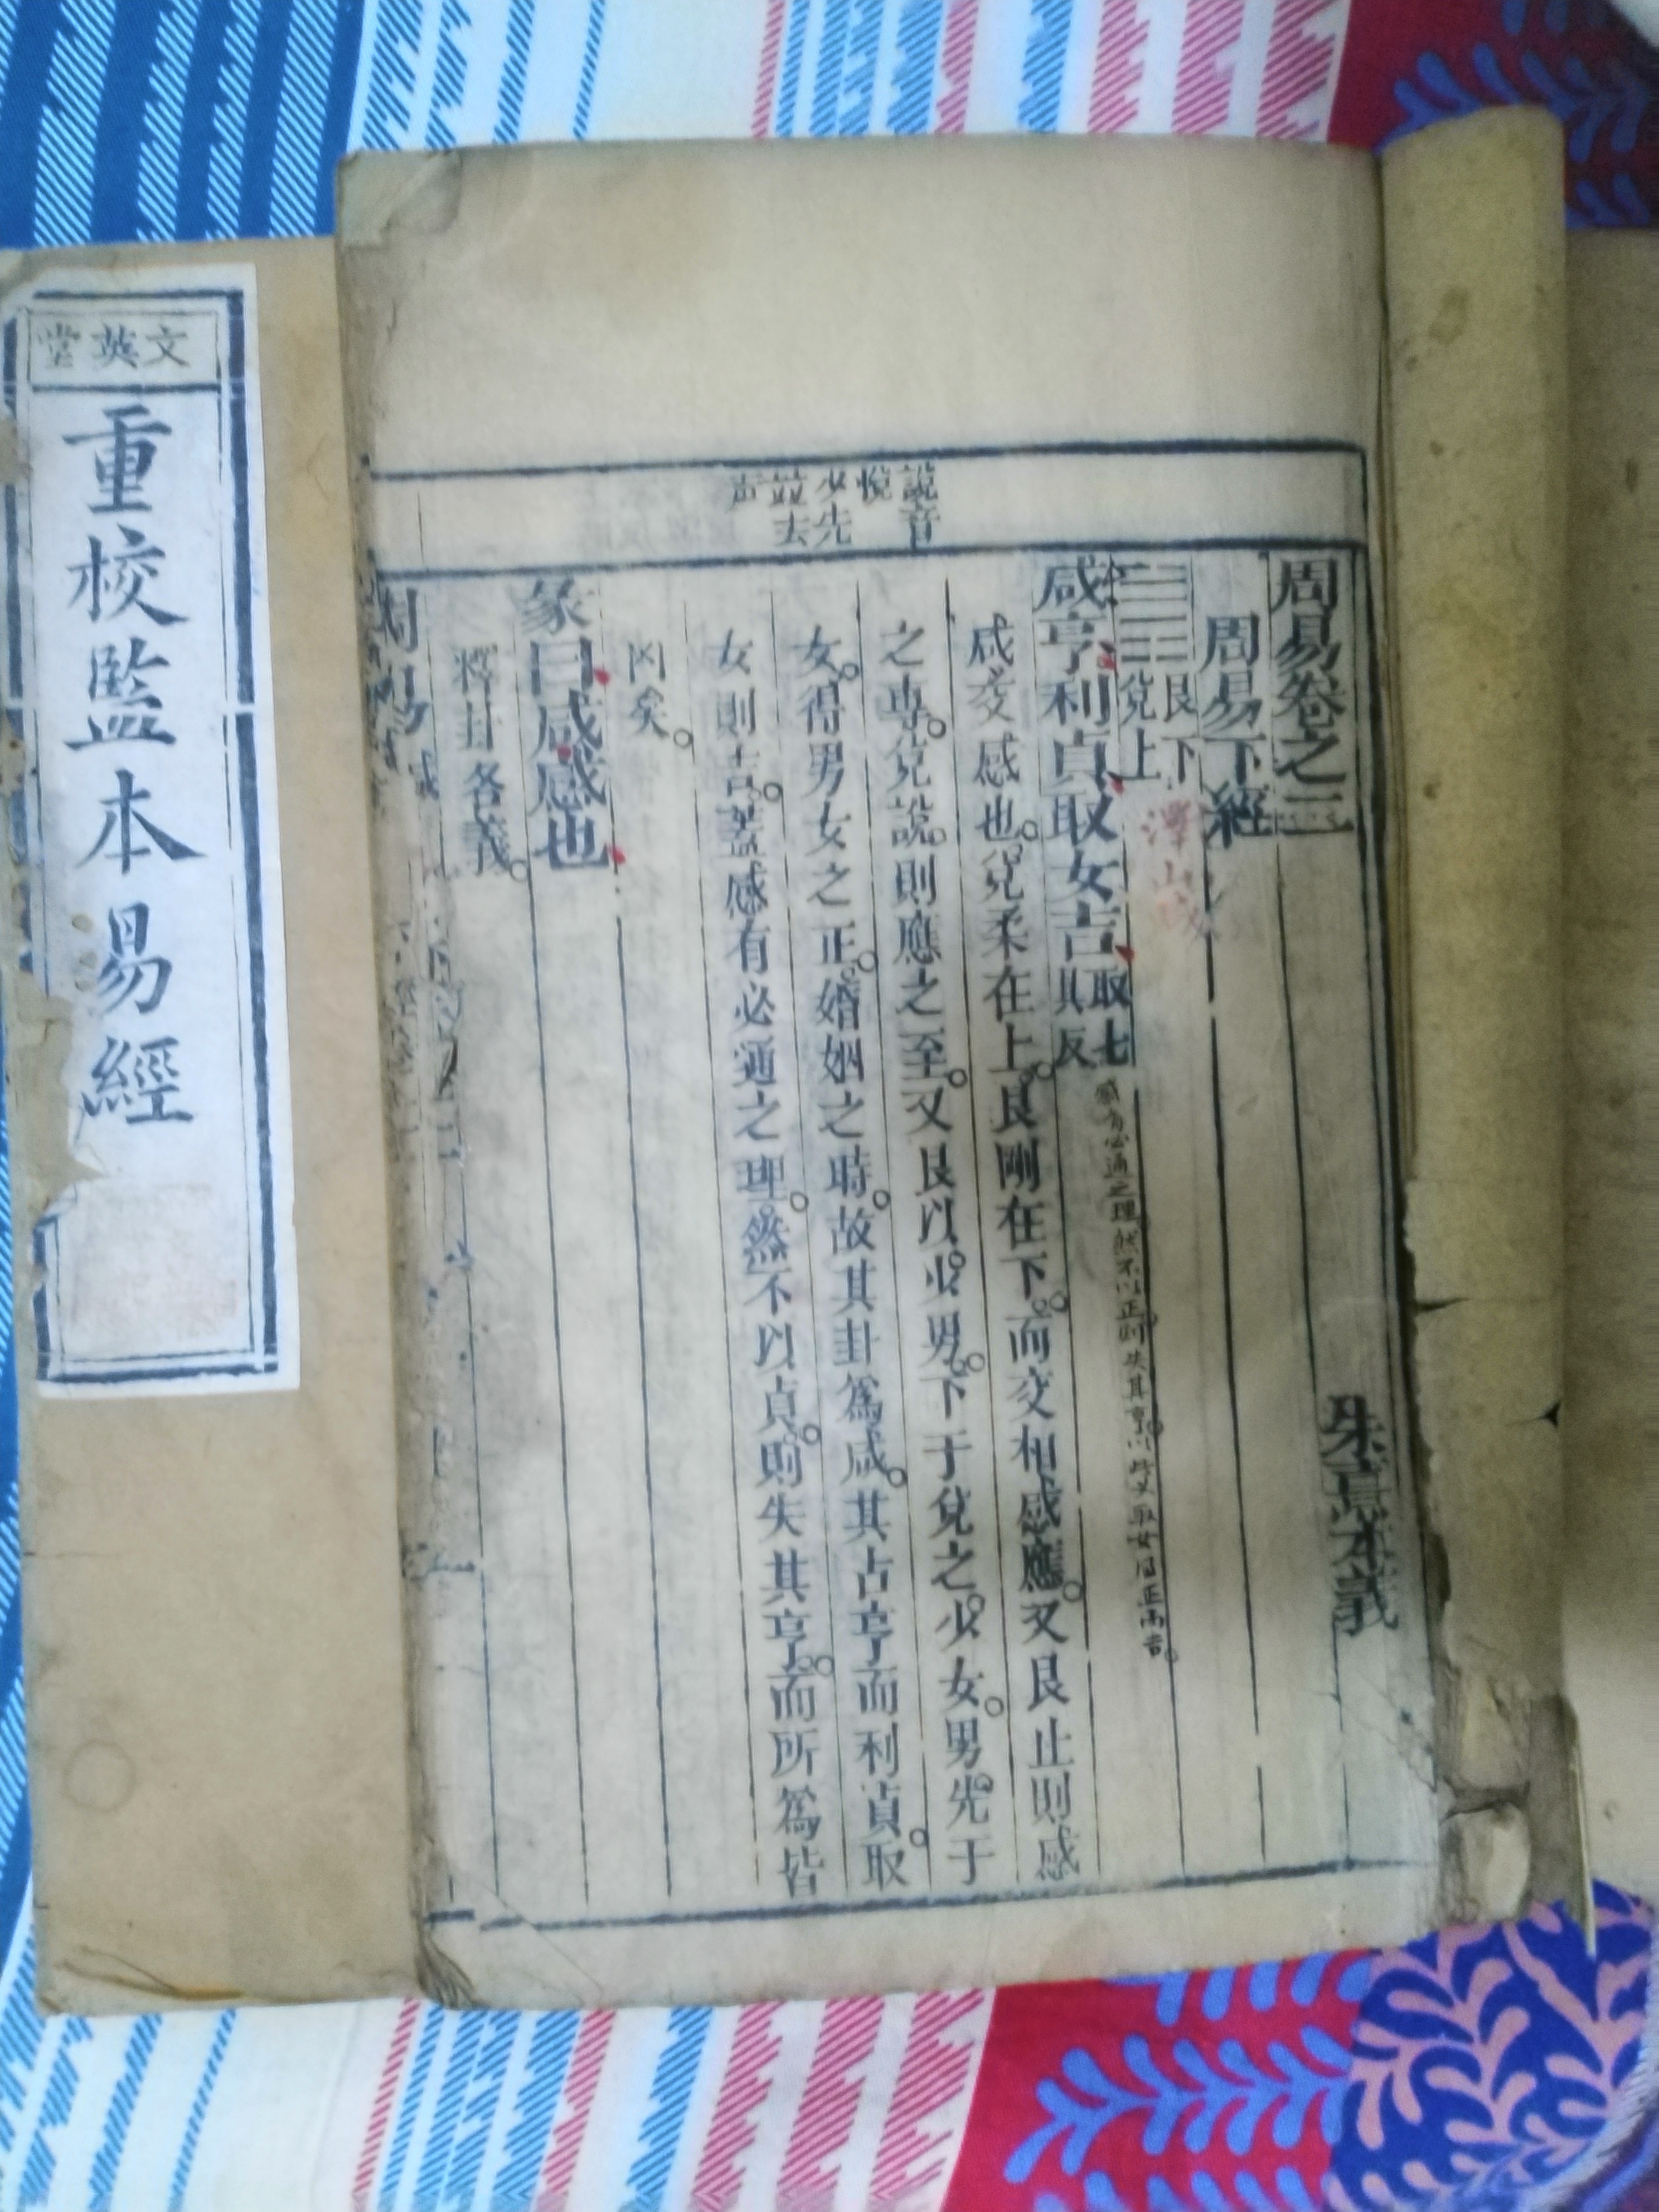 文英堂
重校監本易經
說音
悅
少先
並去
声
周易卷之二
朱熹本義
周易下經
艮下
兌上
澤山咸
咸亨利貞取女吉
取七
具反
感有必通之理然不以正則失其亨
取女
正而吉
咸交感也兌柔在上艮剛在下而交相感應又艮止則感
之專兌說則應之至又艮以少男下于兌之少女男先于
女得男女之正婚姻之時故其卦爲咸其占亨而利貞取
女則吉蓋感有必通之理然不以貞則失其亨而所爲皆
凶矣
彖曰咸感也
釋卦名義